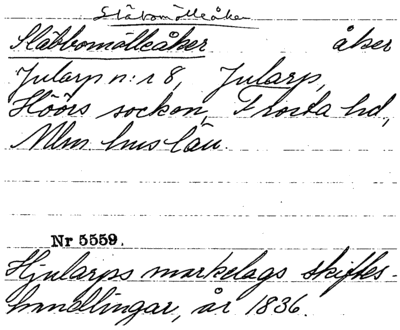 Släbomölleåker
Släbbomölleåker åker
Jularp n:r 8, Jularp,
Höörs socken, Frosta hd,
Mlm hus län.
Nr 5559.
Hjularps markelags skiftes-
handlingar, år 1836.